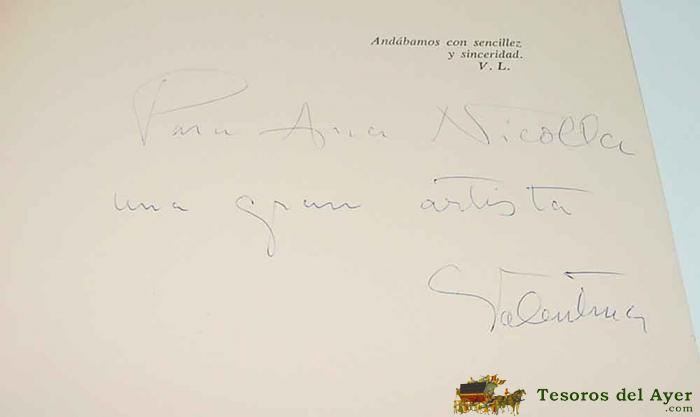 Andábamos con sencillez
y sinceridad.
V. L.
Para Ana Nicolla
una gran artista
Valentina
Tesoros del Ayer
.com